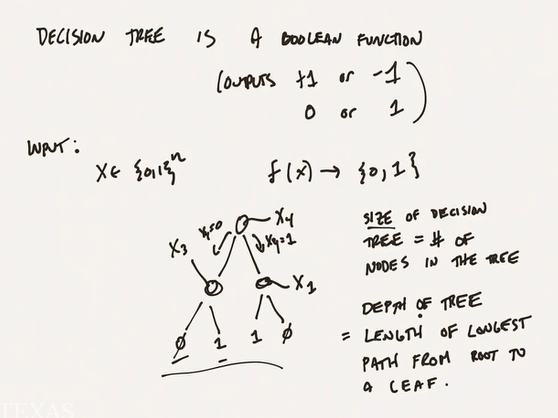 DECISION TREE IS A BOOLEAN FUNCTION
(OUTPUTS +1 or -1
0 or 1)
INPUT:
X ∈ {0,1}^n
f(x) → {0,1}
X4
X4=0
X4=1
X3
X1
0 1 1 0
SIZE OF DECISION
TREE = # OF
NODES IN THE TREE
DEPTH OF TREE
= LENGTH OF LONGEST
PATH FROM ROOT TO
A LEAF.
TEXAS